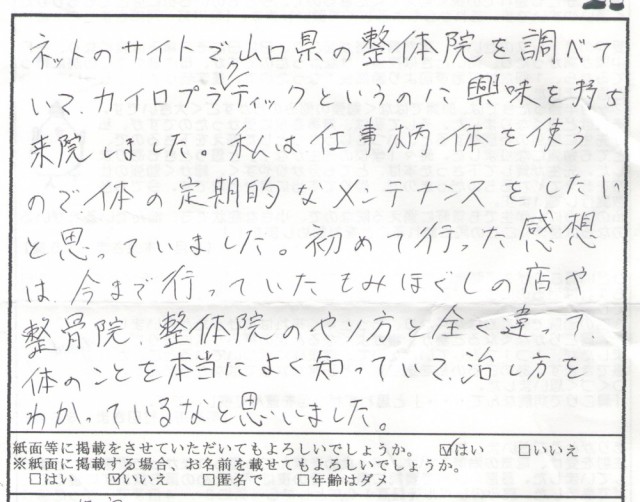 ネットのサイトで山口県の整体院を調べて
いて、カイロプラクティックというのに興味を持ち
来院しました。私は仕事柄体を使う
ので体の定期的なメンテナンスをしたい
と思っていました。初めて行った感想
は、今まで行っていたもみほぐしの店や
整骨院、整体院のやり方と全く違って、
体のことを本当によく知っていて、治し方を
わかっているなと思いました。
紙面等に掲載をさせていただいてもよろしいでしょうか。 ☑はい □いいえ
※紙面に掲載する場合、お名前を載せてもよろしいでしょうか。
□はい ☑いいえ □匿名で □年齢はダメ